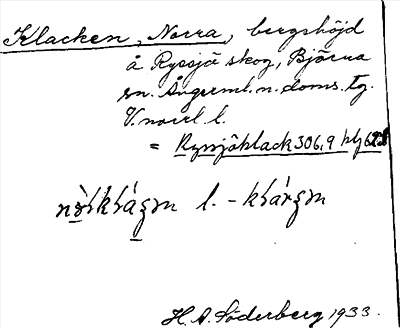 Klacken, Norra, bergshöjd
å Ryssjö skog, Björna
sn. Ångerml. n. doms. tg.
V.norrl l.
= Ryssjöklack 306,9 blj 62
l.
H. A. Söderberg 1933.